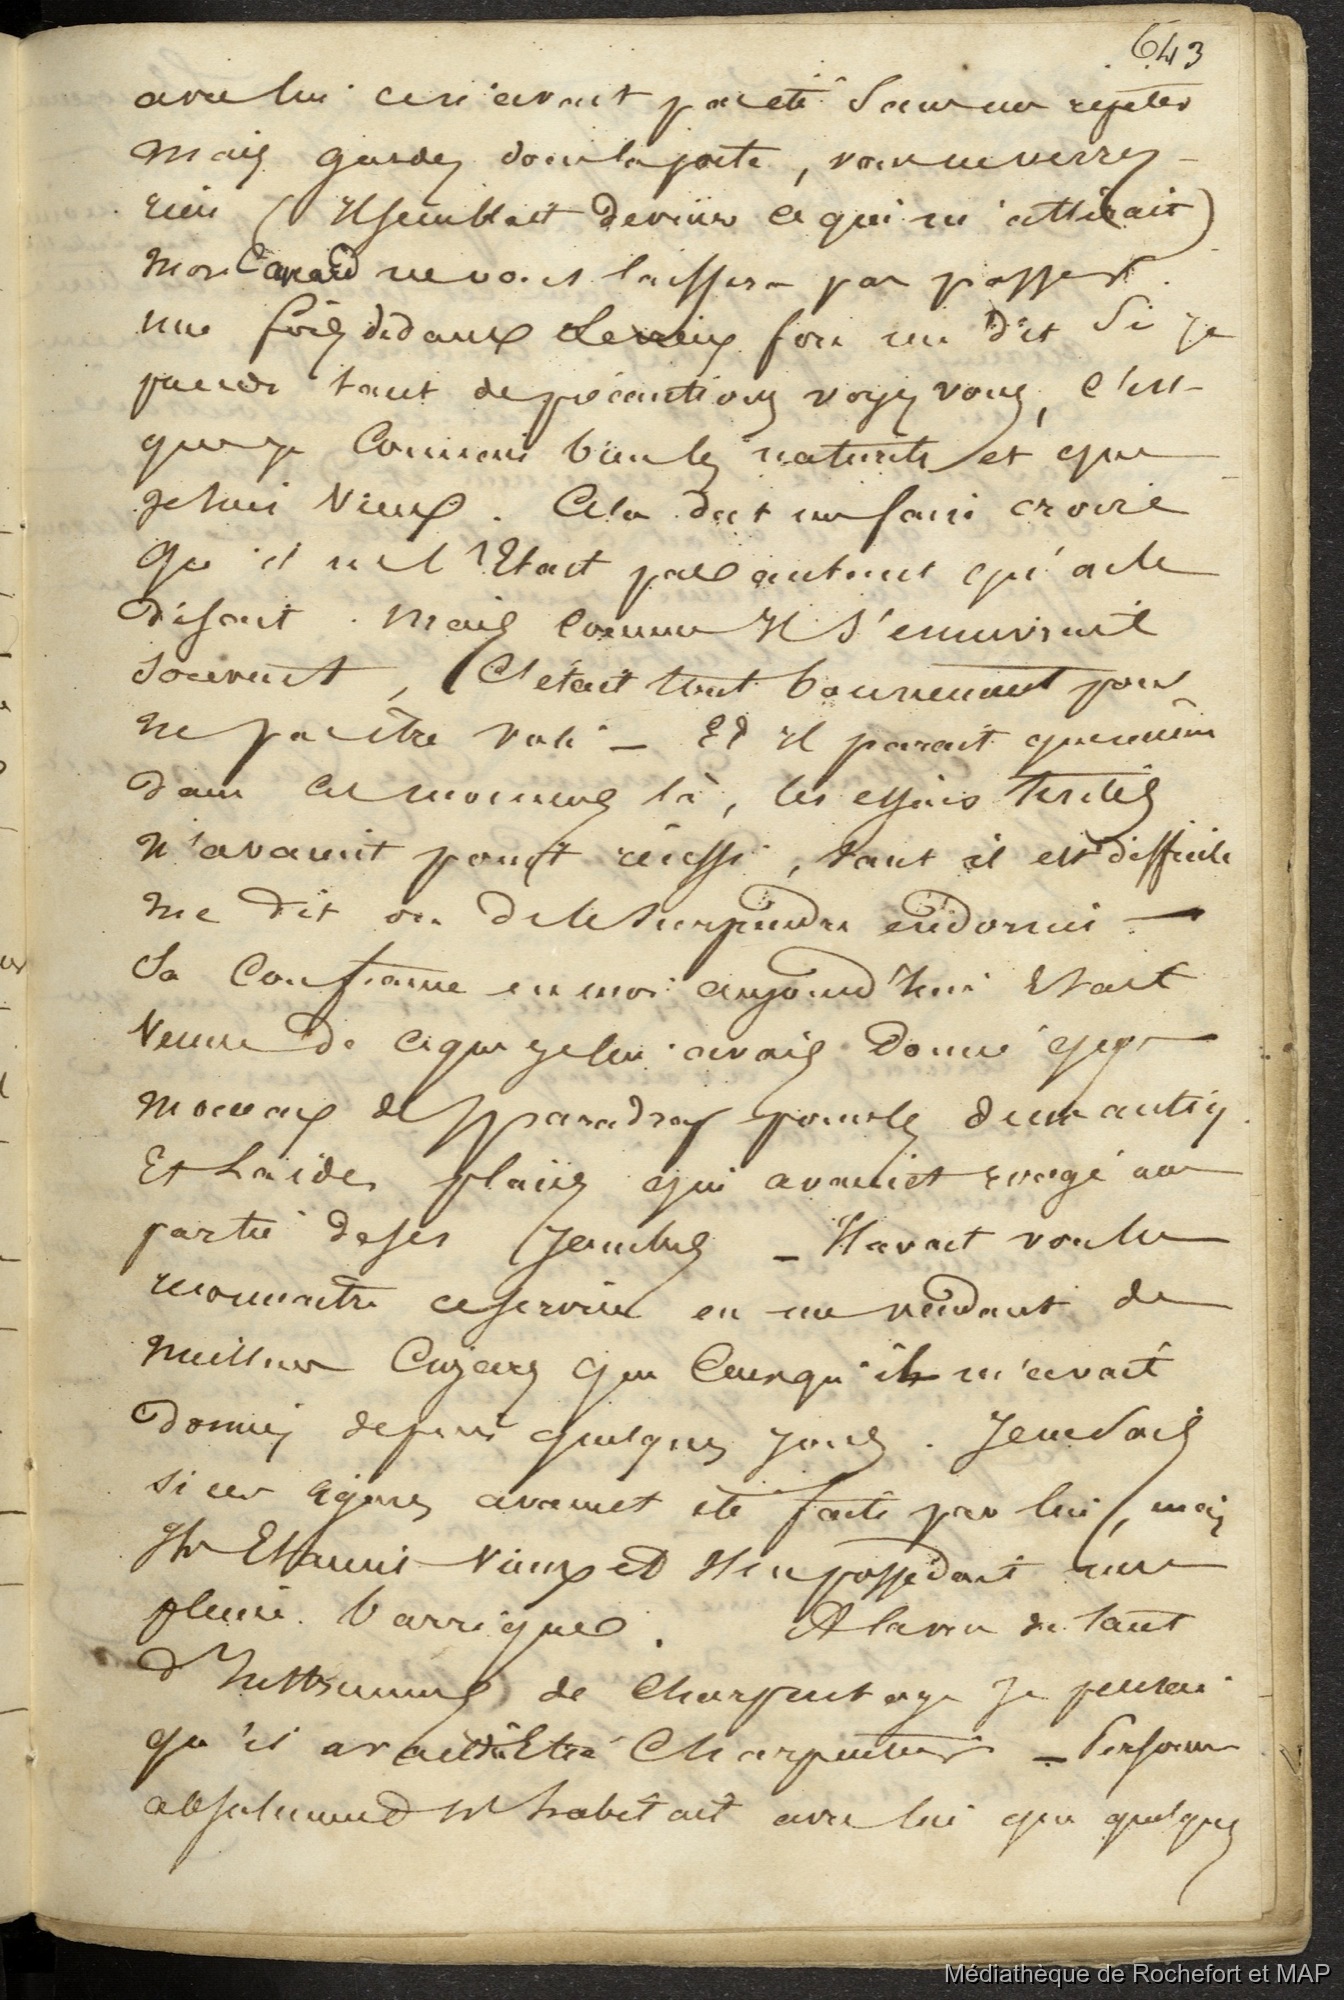 643
avec lui ce n'avait pas été sans me répéter
Mais gardez donc la porte, vous ne verrez
rien (Il semblait deviner ce qui m'attirait)
Mon Canard ne vous laissera pas passer.
une fois dedans le vieux fou me dit Si je
prends tant de précautions voyez vous, c'est
que je connais bien les naturels et que
je suis vieux. Cela doit me faire croire
qu'il ne l'Etait pas autant qu'on le
disait. Mais comme Il s'enivrait
souvent, C'était tout bonnement pour
ne pas être volé — Et Il parait que même
dans ces moments là, les essais tentés
n'avaient point réussi, tant il est difficile
me dit on de le surprendre endormi —
Sa Confiance en moi aujourd'hui Etait
Venue de ce que je lui avais Donné qques
morceaux de sparadrap pour les deux antiq
Et Laides plaies qui avaient rongé une
partie de ses Jambes — Il avait voulu
reconnaitre ce service en me vendant de
meilleurs Cigares que Ceux qu'il m'avait
Donnés depuis quelques jours. Je ne sais
si ces cigares avaient été faits par lui, mais
Ils Etaient Vieux et Il en possédait une
pleine barrique. A la vue de tant
d'Instruments de Charpentage Je pensai
qu'il avait dû Etre Charpentier — Personne
absolument N'habitait avec lui que quelques
Médiathèque de Rochefort et MAP